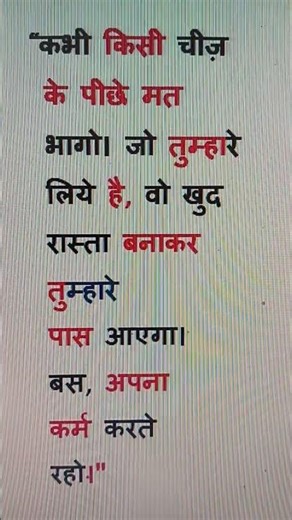 “कभी किसी चीज़
के पीछे मत
भागो। जो तुम्हारे
लिये है, वो खुद
रास्ता बनाकर
तुम्हारे
पास आएगा।
बस, अपना
कर्म करते
रहो।"